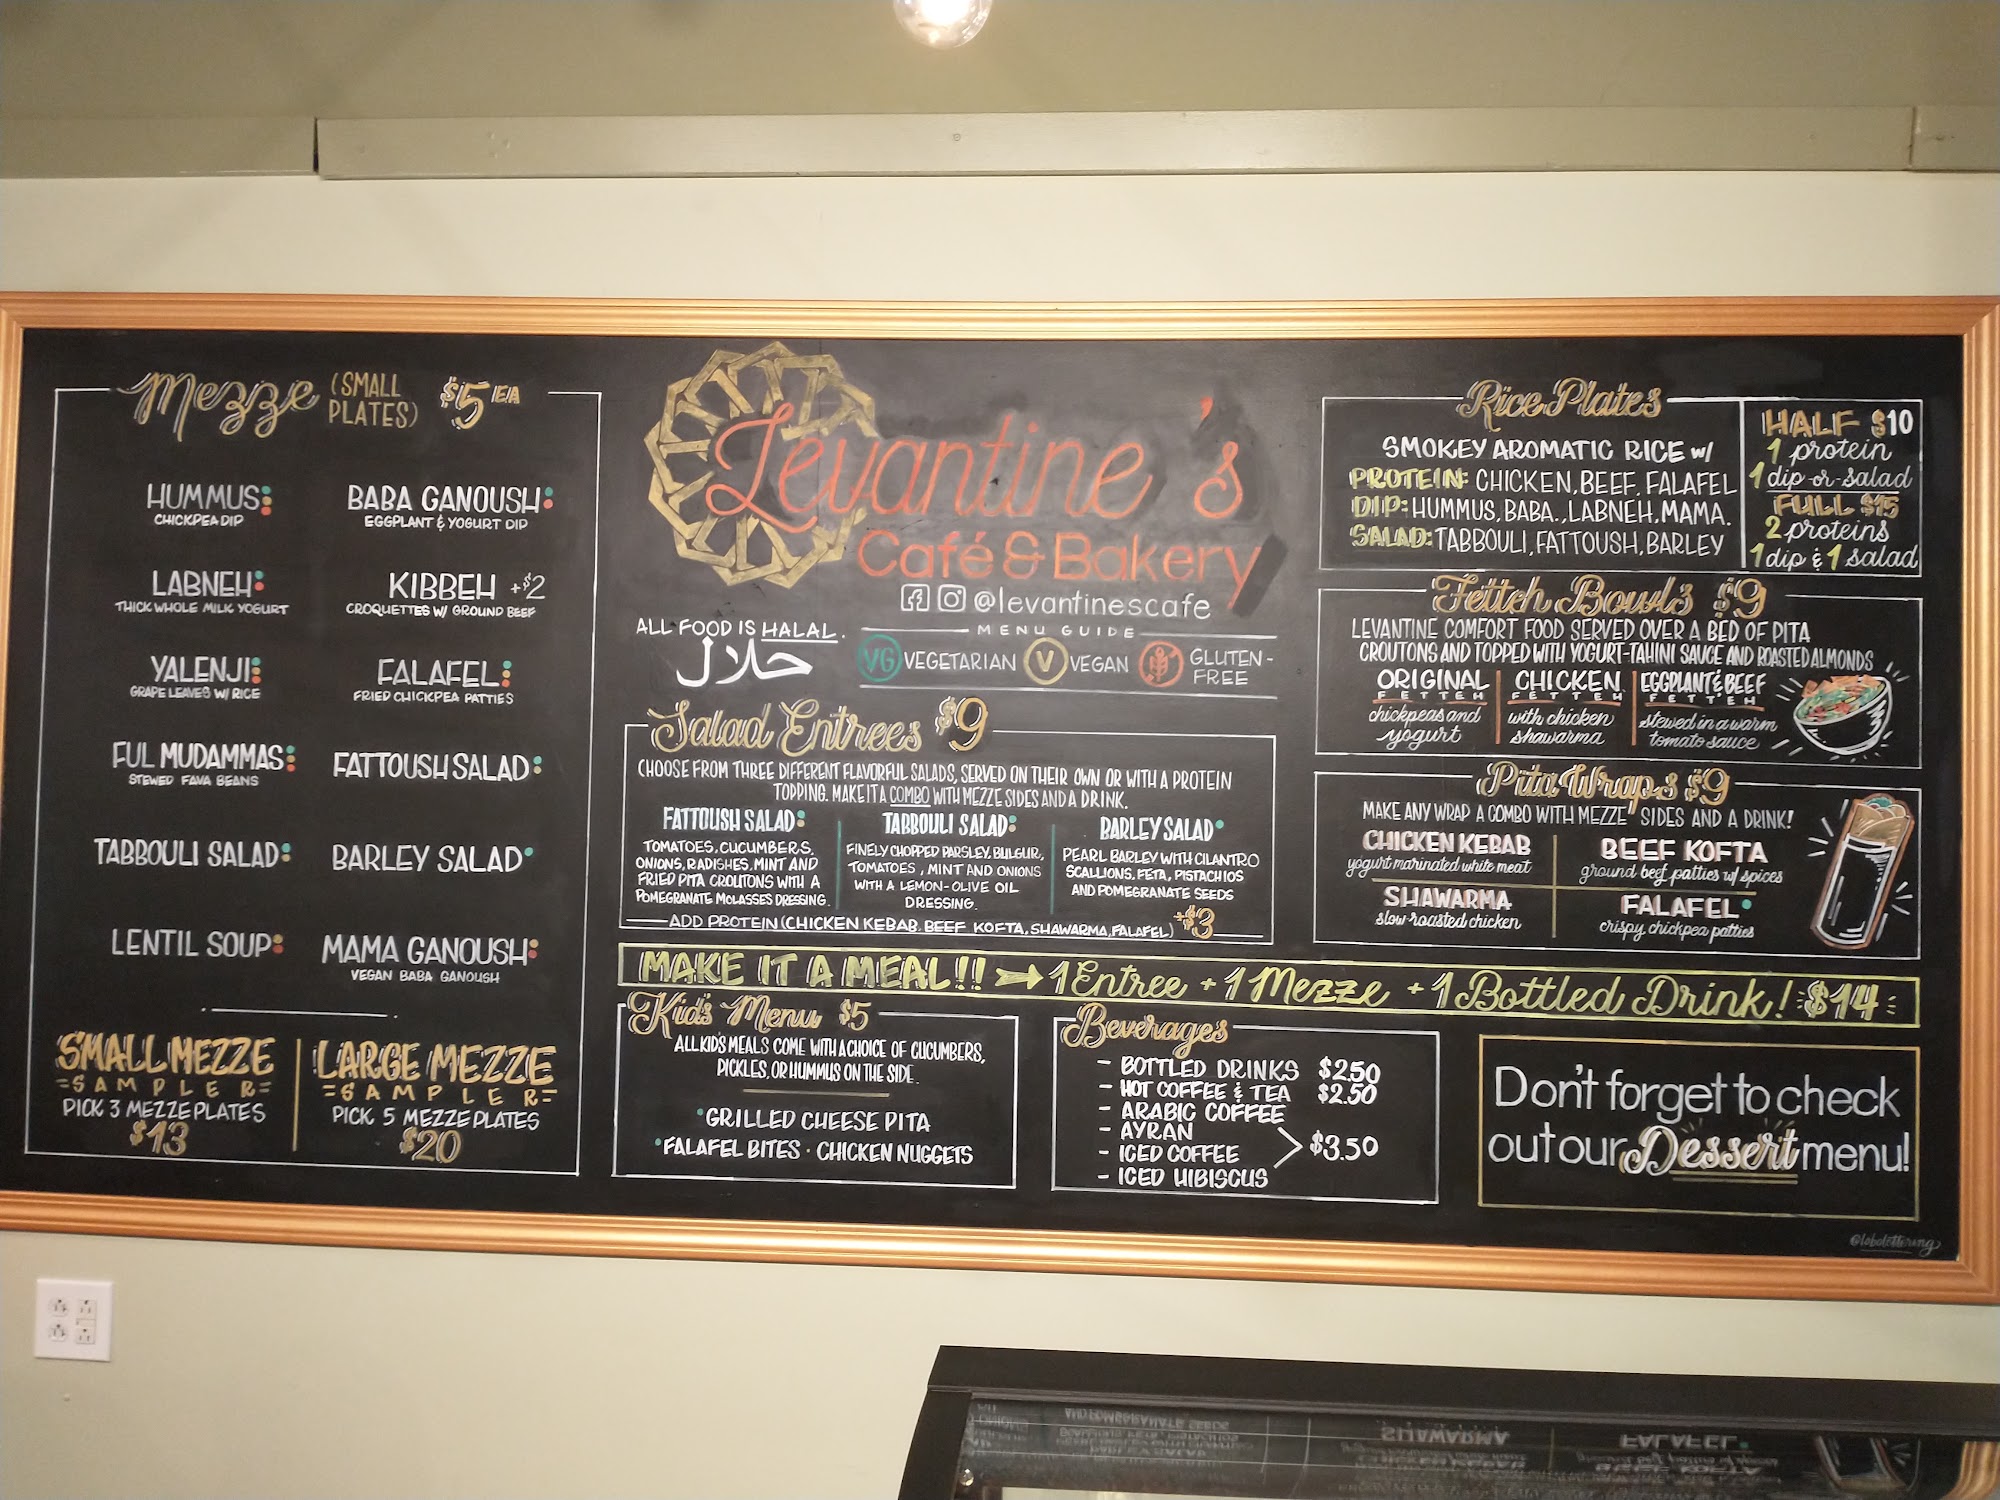 Mezze (SMALL PLATES) $5 EA
HUMMUS
CHICKPEA DIP
BABA GANOUSH
EGGPLANT & YOGURT DIP
LABNEH
THICK WHOLE MILK YOGURT
KIBBEH +$2
CROQUETTES W/ GROUND BEEF
YALENJI
GRAPE LEAVES W/ RICE
FALAFEL
FRIED CHICKPEA PATTIES
FUL MUDAMMAS
STEWED FAVA BEANS
FATTOUSH SALAD
TABBOULI SALAD
BARLEY SALAD
LENTIL SOUP
MAMA GANOUSH
VEGAN BABA GANOUSH
SMALL MEZZE
=SAMPLER=
PICK 3 MEZZE PLATES
$13
LARGE MEZZE
=SAMPLER=
PICK 5 MEZZE PLATES
$20
Levantine's
Café & Bakery
@levantinescafe
ALL FOOD IS HALAL.
حلال
MENU GUIDE
VG VEGETARIAN V VEGAN GLUTEN-
FREE
Salad Entrees $9
CHOOSE FROM THREE DIFFERENT FLAVORFUL SALADS, SERVED ON THEIR OWN OR WITH A PROTEIN
TOPPING. MAKE IT A COMBO WITH MEZZE SIDES AND A DRINK.
FATTOUSH SALAD
TOMATOES, CUCUMBERS,
ONIONS, RADISHES, MINT AND
FRIED PITA CROUTONS WITH A
POMEGRANATE MOLASSES DRESSING.
TABBOULI SALAD
FINELY CHOPPED PARSLEY, BULGUR,
TOMATOES, MINT AND ONIONS
WITH A LEMON-OLIVE OIL
DRESSING.
BARLEY SALAD
PEARL BARLEY WITH CILANTRO
SCALLIONS, FETA, PISTACHIOS
AND POMEGRANATE SEEDS
ADD PROTEIN (CHICKEN KEBAB, BEEF KOFTA, SHAWARMA, FALAFEL) +$3
Rice Plates
SMOKEY AROMATIC RICE w/
PROTEIN: CHICKEN, BEEF, FALAFEL
DIP: HUMMUS, BABA., LABNEH, MAMA.
SALAD: TABBOULI, FATTOUSH, BARLEY
HALF $10
1 protein
1 dip or salad
FULL $15
2 proteins
1 dip & 1 salad
Fetteh Bowls $9
LEVANTINE COMFORT FOOD SERVED OVER A BED OF PITA
CROUTONS AND TOPPED WITH YOGURT-TAHINI SAUCE AND ROASTED ALMONDS
ORIGINAL
FETTEH
chickpeas and
yogurt
CHICKEN
FETTEH
with chicken
shawarma
EGGPLANT & BEEF
FETTEH
stewed in a warm
tomato sauce
Pita Wraps $9
MAKE ANY WRAP A COMBO WITH MEZZE SIDES AND A DRINK!
CHICKEN KEBAB
yogurt marinated white meat
BEEF KOFTA
ground beef patties w/ spices
SHAWARMA
slow-roasted chicken
FALAFEL
crispy chickpea patties
MAKE IT A MEAL!! → 1 Entree + 1 Mezze + 1 Bottled Drink! $14
Kid's Menu $5
ALL KIDS MEALS COME WITH A CHOICE OF CUCUMBERS,
PICKLES, OR HUMMUS ON THE SIDE.
GRILLED CHEESE PITA
FALAFEL BITES · CHICKEN NUGGETS
Beverages
- BOTTLED DRINKS $2.50
- HOT COFFEE & TEA $2.50
- ARABIC COFFEE
- AYRAN
- ICED COFFEE
- ICED HIBISCUS
$3.50
Don't forget to check
out our Dessert menu!
@lobolettering